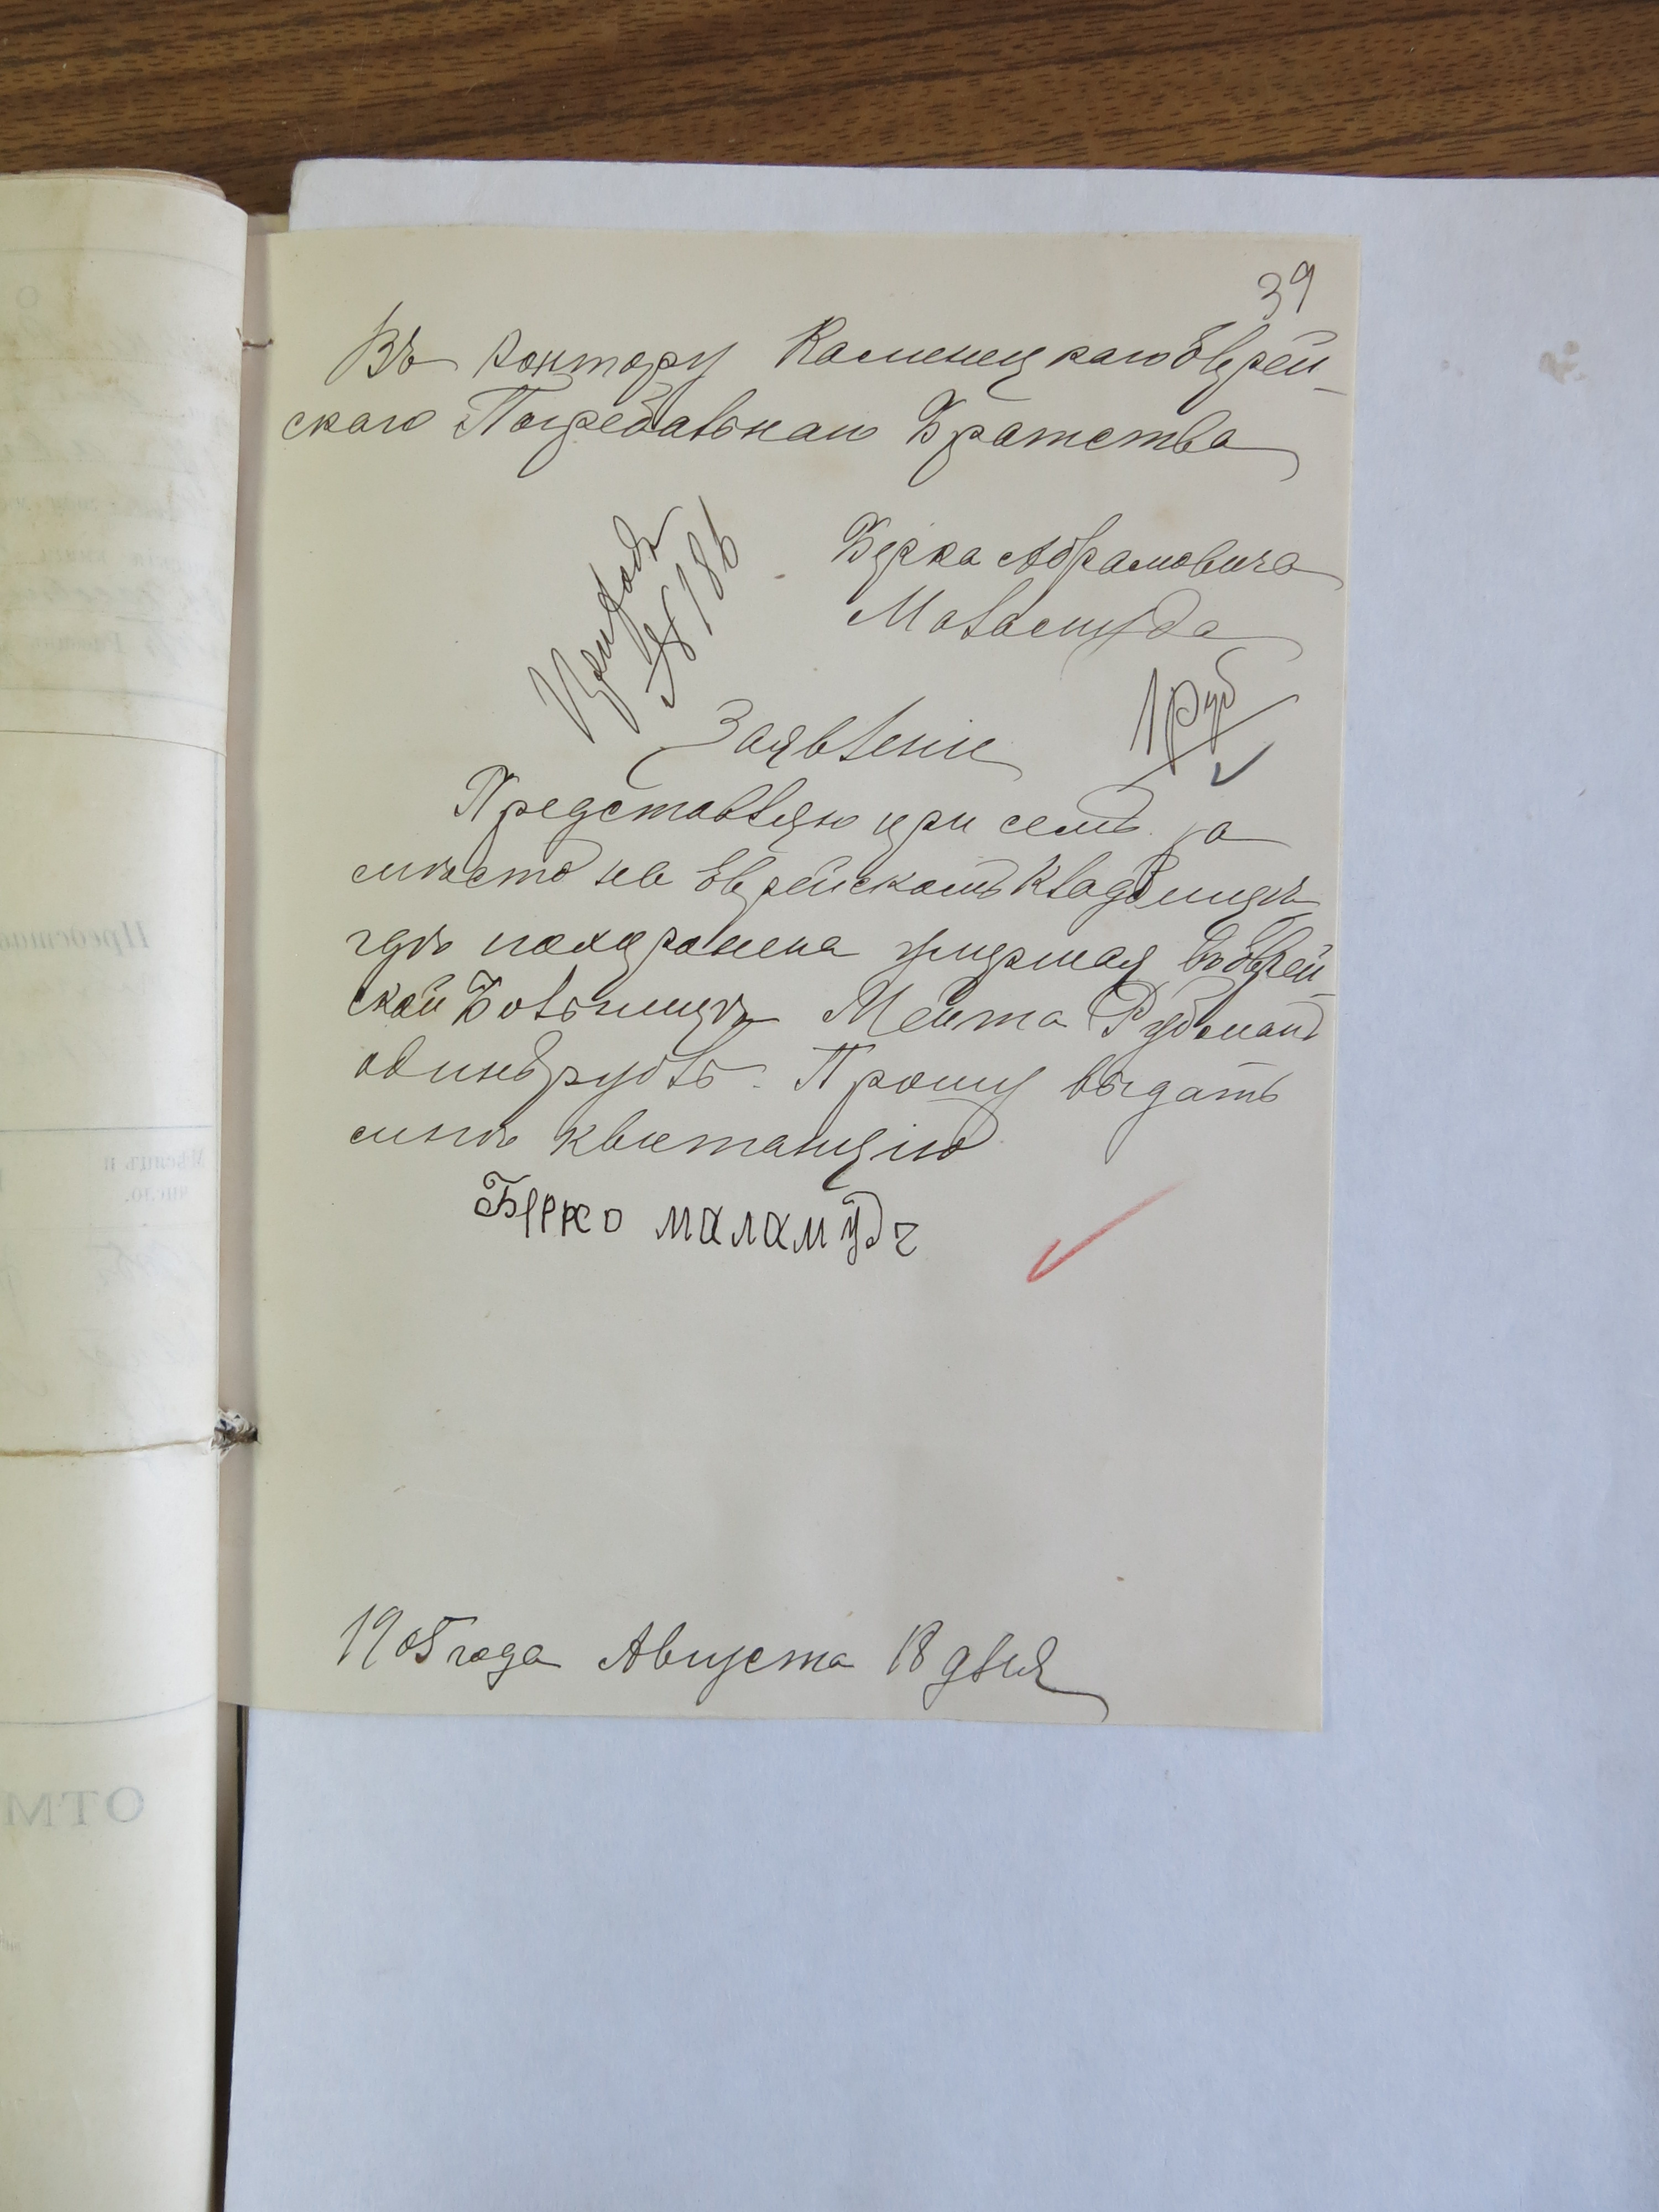 39
Въ контору Каменецкаго Еврей-
скаго Погребальнаго Братства
Берка Абрамовича
Маламуда
№ 186
1 руб
Заявленіе
Представляю при семъ за
мѣсто на Еврейскомъ Кладбищѣ
гдѣ похоронена умершая въ Еврей-
ской Больницѣ Мента Рубманъ
одинъ рубль. Прошу выдать
мнѣ квитанцію
Берко маламуд
1905 года Августа 18 дня
ОТМ